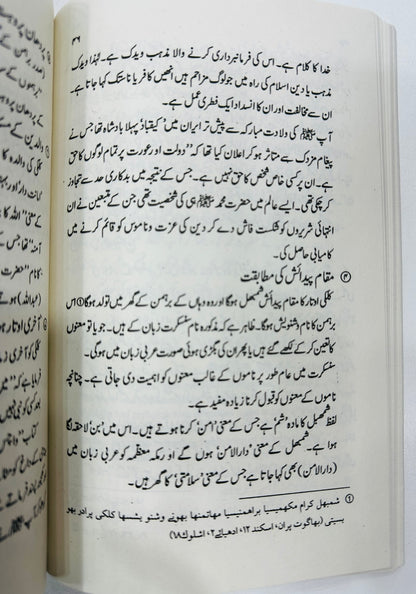 ۳۶
خدا کا کلام ہے۔ اس کی فرمانبرداری کرنے والا مذہب ویدک ہے۔ لہٰذا ویدک
مذہب یا دین اسلام کی راہ میں جو لوگ مزاحم ہیں انھیں کافر یا ناستک کہا جاتا ہے۔
ان سے مخالفت اور ان کا انسداد ایک فطری عمل ہے۔
آپ ﷺ کی ولادت مبارکہ سے پیش تر ایران میں ’کیقباذ‘ پہلا بادشاہ تھا جس نے
پیغام مزدک سے متاثر ہو کر اعلان کیا تھا کہ ”دولت اور عورت پر تمام لوگوں کا حق
ہے۔ ان پر کسی خاص شخص کا حق نہیں ہے۔ جس کے نتیجہ میں بدکاری حد سے تجاوز
کر چکی تھی۔ ایسے عالم میں حضرت محمد ﷺ ہی کی شخصیت تھی جن کے متبعین نے ان
انتہائی شریروں کو شکست فاش دے کر دین کی عزت و ناموس کو قائم کرنے میں
کامیابی حاصل کی۔
③ مقام پیدائش کی مطابقت
کلکی اوتار کا مقام پیدائش شمبھل ہوگا اور وہ وہاں کے برہمن کے گھر میں تولد ہوگا① اس
برہمن کا نام وشنویش ہوگا۔ ظاہر ہے کہ مذکورہ نام سنسکرت زبان کے ہیں۔ جو یا تو معنوں
کا تعین کر کے لکھے گئے ہیں یا پھر ان کی بگڑی ہوئی صورت عربی زبان میں ہوگی۔
سنسکرت میں عام طور پر ناموں کے غالب معنوں کو اہمیت دی جاتی ہے۔ چنانچہ
ناموں کے معنوں کو قبول کرنا زیادہ مفید ہے۔
لفظ شمبھل کا مادہ ’شم‘ ہے جس کے معنی ’امن‘ کرنا ہوتے ہیں۔ اس میں ’بن‘ لاحقہ لگا
ہوا ہے۔ شمبھل کے معنی ’دارالامن‘ ہوں گے اور مکہ معظمہ کو عربی زبان میں
(دارالامن) بھی کہا جاتا ہے جس کے معنی ’سلامتی‘ کا گھر ہیں۔
① شمبھل گرام مکھیسیا براھمنیسیا مہاتمنھا بھونے وشنو یشسھا کلکی پرادر بھو
بسیتی (بھاگوت پران، اسکند ۱۲، ادھیائے ۲، اشلوک ۱۸)